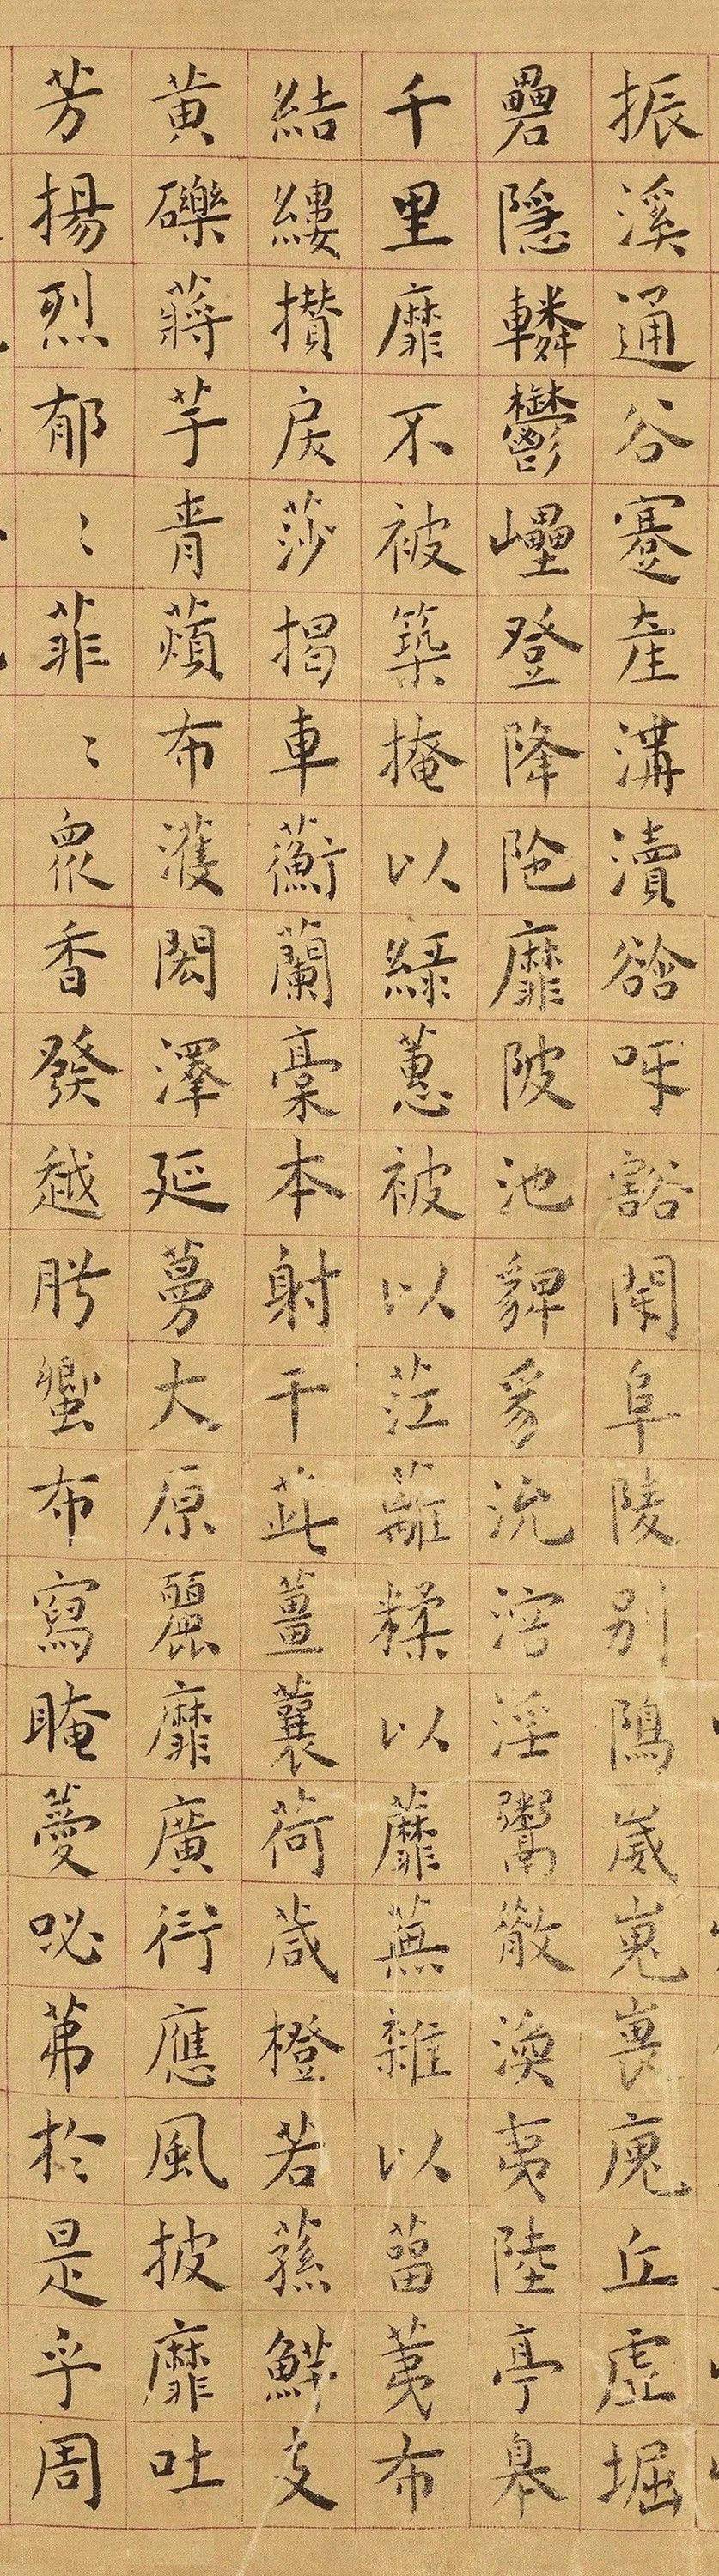 振溪通谷蹇產溝瀆谽呀豁閜阜陵別隝崴嵬㟪廆丘虛堀
礨隱轔鬱㠥登降陁靡陂池貏豸沇溶淫鬻散渙夷陸亭皋
千里靡不被築掩以綠蕙被以茳蘺糅以蘼蕪雜以菑荑布
結縷攅戾莎揭車蘅蘭槀本射干茈薑蘘荷葴橙若蓀鮮支
黃礫蔣芧青薠布濩閎澤延蔓大原麗靡廣衍應風披靡吐
芳揚烈郁〻菲〻眾香發越肸蠁布寫晻薆咇茀於是乎周